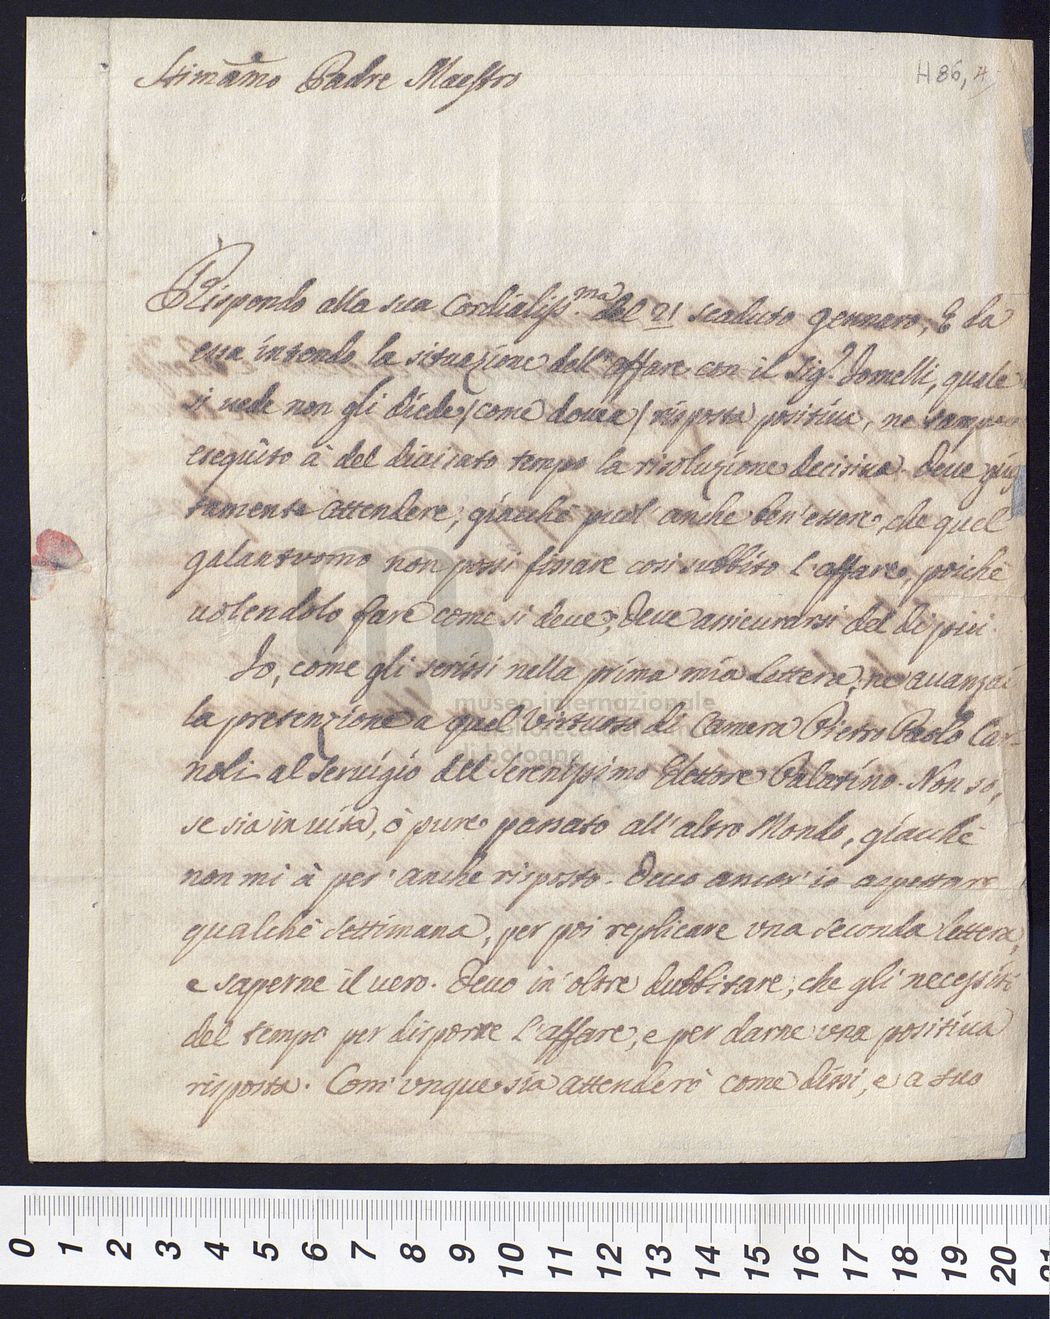 Stimãmo Padre Maestro
H 86, 4
Rispondo alla sua Cordialiss.ma del 21 scaduto gennero, E da
essa intendo la situazione dell'affare con il Sig.r Jomelli, quale
si vede non gli diede (come dovea) risposta positiva, ne
esequito à del divisato tempo la risoluzione decisiva. Deve
tamente attendere, giacchè puol anche ben'essere, che quel
galantuomo non possi finare così subbito l'affare, poichè
volendolo fare come si deve, deve assicurarsi del di più.
Io, come gli scrissi nella prima mia lettera, ne avanzai
la pretenzione a quel Virtuoso di Camera Pietro Paolo Car-
noli al Servigio del Serenissimo Elettore Palatino. Non so,
se sia in vita, ò pure passato all'altro Mondo, giacchè
non mi à per'anche risposto. Devo ancor'io aspettare
qualche settimana, per poi replicare una seconda lettera,
e saperne il vero. Devo in'oltre dubbitare, che gli necessiti
del tempo per disporre l'affare, e per darne una positiva
risposta. Com'unque sia attenderò come dissi, e a suo
museo internazionale
di bologna
0 1 2 3 4 5 6 7 8 9 10 11 12 13 14 15 16 17 18 19 20 21